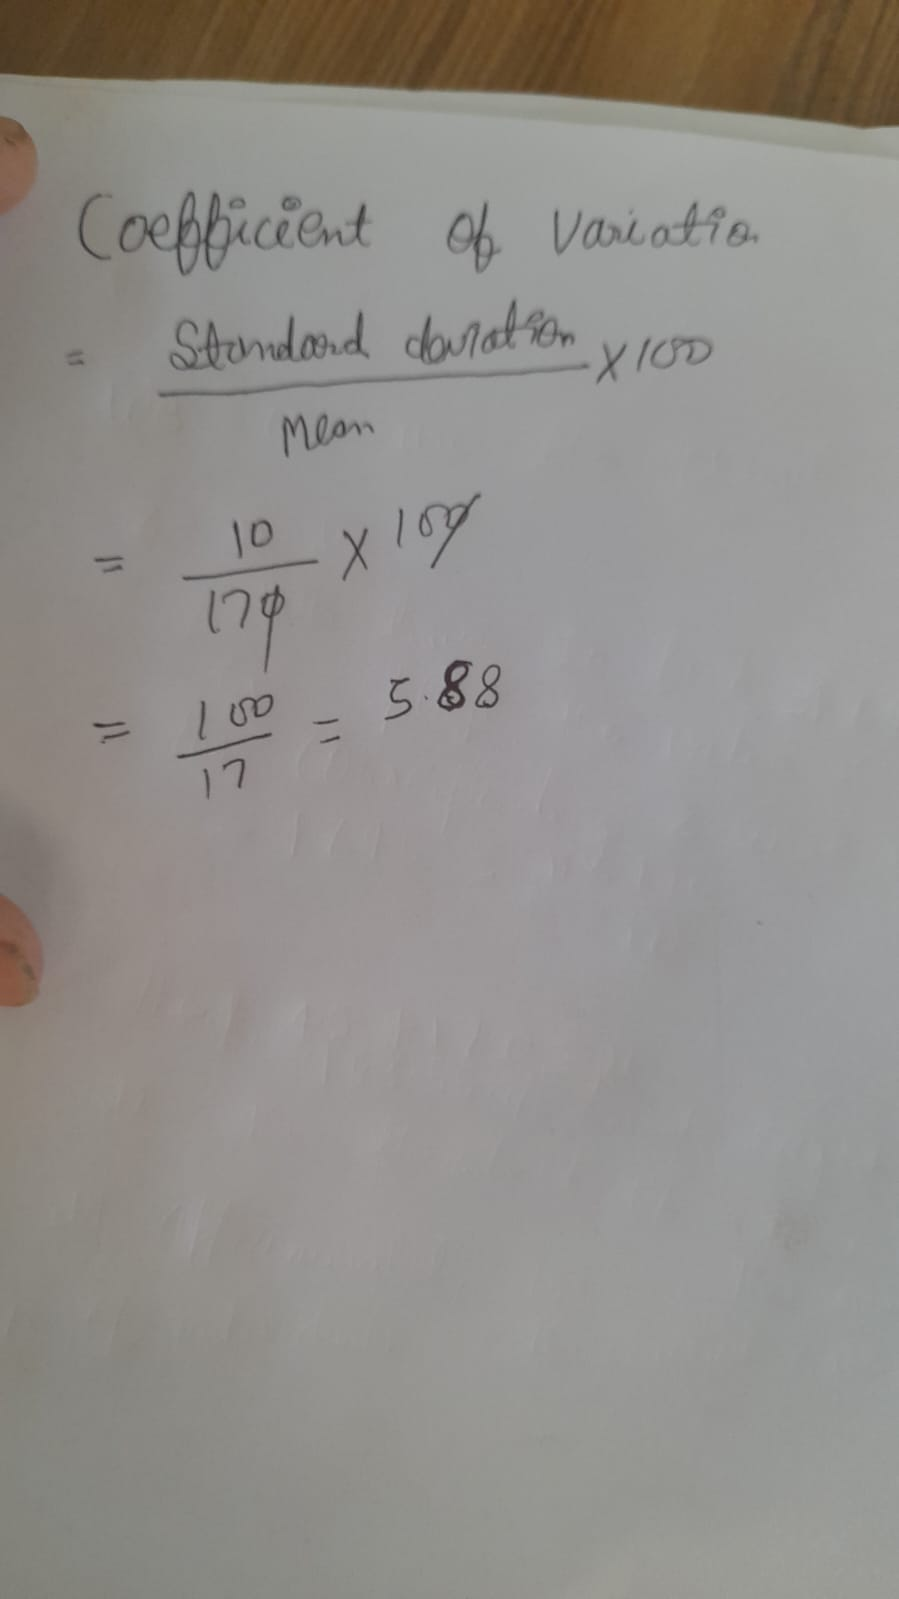 Coefficient of Variatio.
= Standard daviation / Mean X 100
= 10 / 170 X 100
= 100 / 17 = 5.88